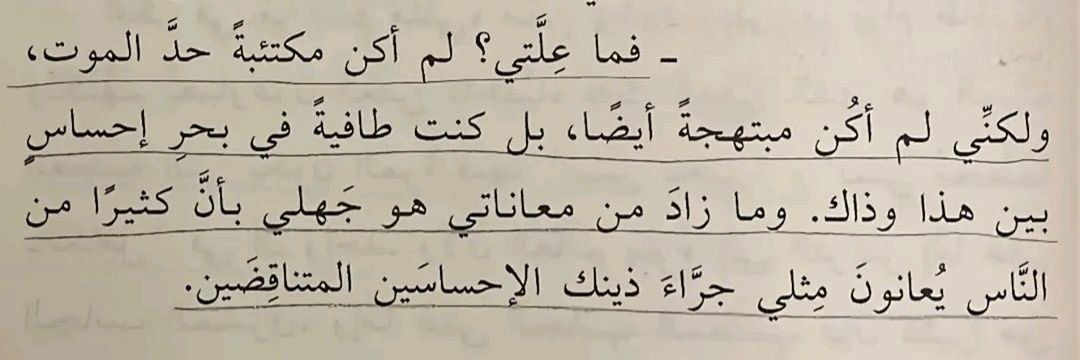 ـ فما عِلَّتي؟ لم أكن مكتئبةً حدَّ الموت،
ولكنِّي لم أكُن مبتهجةً أيضًا، بل كنت طافيةً في بحرِ إحساسٍ
بين هذا وذاك. وما زادَ من معاناتي هو جَهلي بأنَّ كثيرًا من
النَّاس يُعانونَ مِثلي جرَّاءَ ذينك الإحساسَين المتناقِضَين.